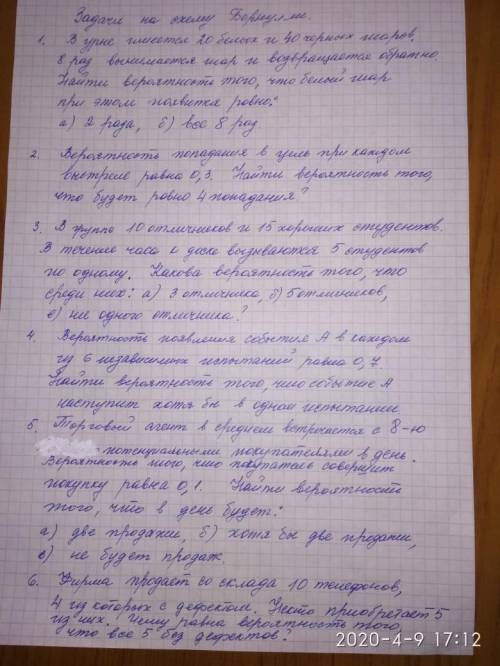 Задачи на схему Бернулли.
1. В урне имеется 20 белых и 40 черных шаров,
8 раз вынимается шар и возвращается обратно.
Найти вероятность того, что белый шар
при этом появится равно:
а) 2 раза, б) все 8 раз.
2. Вероятность попадания в цель при каждом
выстреле равна 0,3. Найти вероятность того,
что будет равно 4 попадания?
3. В группе 10 отличников и 15 хороших студентов.
В течение часа к доске вызываются 5 студентов
по одному. Какова вероятность того, что
среди них: а) 3 отличника, б) 5 отличников,
с) ни одного отличника?
4. Вероятность появления события А в каждом
из 6 независимых испытаний равна 0,7.
Найти вероятность того, что событие А
наступит хотя бы в одном испытании
5. Торговый агент в среднем встречается с 8-ю
потенциальными покупателями в день.
Вероятность того, что покупатель совершит
покупку равна 0,1. Найти вероятность
того, что в день будет:
а) две продажи, б) хотя бы две продажи,
с) не будет продаж.
6. Фирма продает со склада 10 телефонов,
4 из которых с дефектом. Некто приобретает 5
из них. Чему равна вероятность того,
что все 5 без дефектов?
2020-4-9 17:12